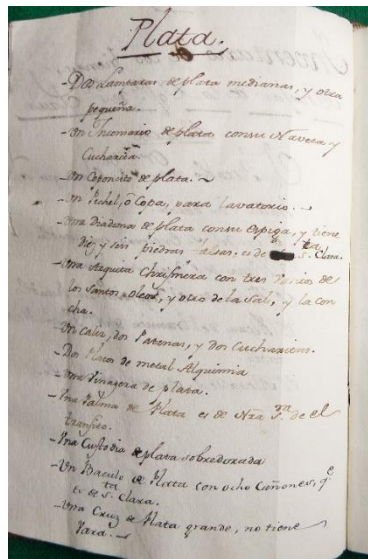 Plata.
- Dos Lamparas de plata medianas, y otra
pequeña.
- Un Incensario de plata con su Naveta y
Cucharita.
- Un Coponcito de plata.
- Un Pichel, ô Copa, para lavatorio.
- Una diadema de plata con su Espiga, y tiene
diez y seis piedras falsas. es de Sta. Clara.
- Una Arquita Chrismera con tres Vasitos de
los Santos oleos, y otro de la Sal, y la con
cha.
- Un Caliz, dos Patenas, y dos Cucharitas.
- Dos Platos de metal Alquimia
- Una Vinagera de plata.
- Una Palma de Plata es de Nra Sra. de el
transito.
- Una Custodia de plata sobredorada
- Un Baculo de Plata con ocho Cañones, qe
es de Sta. Clara.
- Una Cruz de Plata grande, no tiene
Vara.